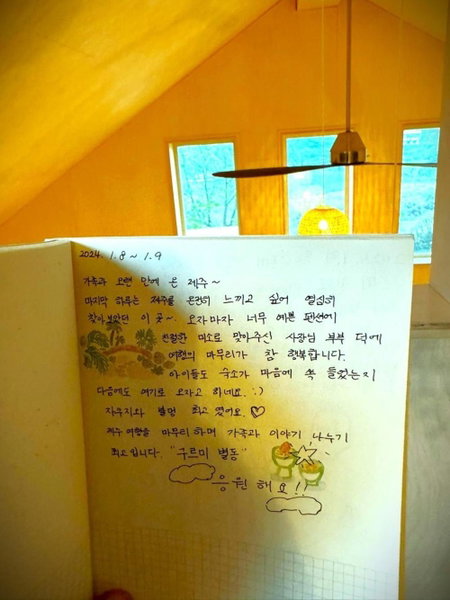 2024. 1.8 ~ 1.9
가족과 오랜 만에 온 제주~
마지막 하루는 제주를 온전히 느끼고 싶어 열심히
찾아보았던 이 곳~. 오자마자 너무 예쁜 펜션에
친절한 미소로 맞아주신 사장님 부부 덕에
여행의 마무리가 참 행복합니다.
아이들도 숙소가 마음에 쏙 들었는지
다음에도 여기로 오자고 하네요. :)
자쿠지와 불멍 최고였어요. ♡
제주 여행을 마무리하며 가족과 이야기 나누기
최고입니다. "구르미 별동"
응원해요!!